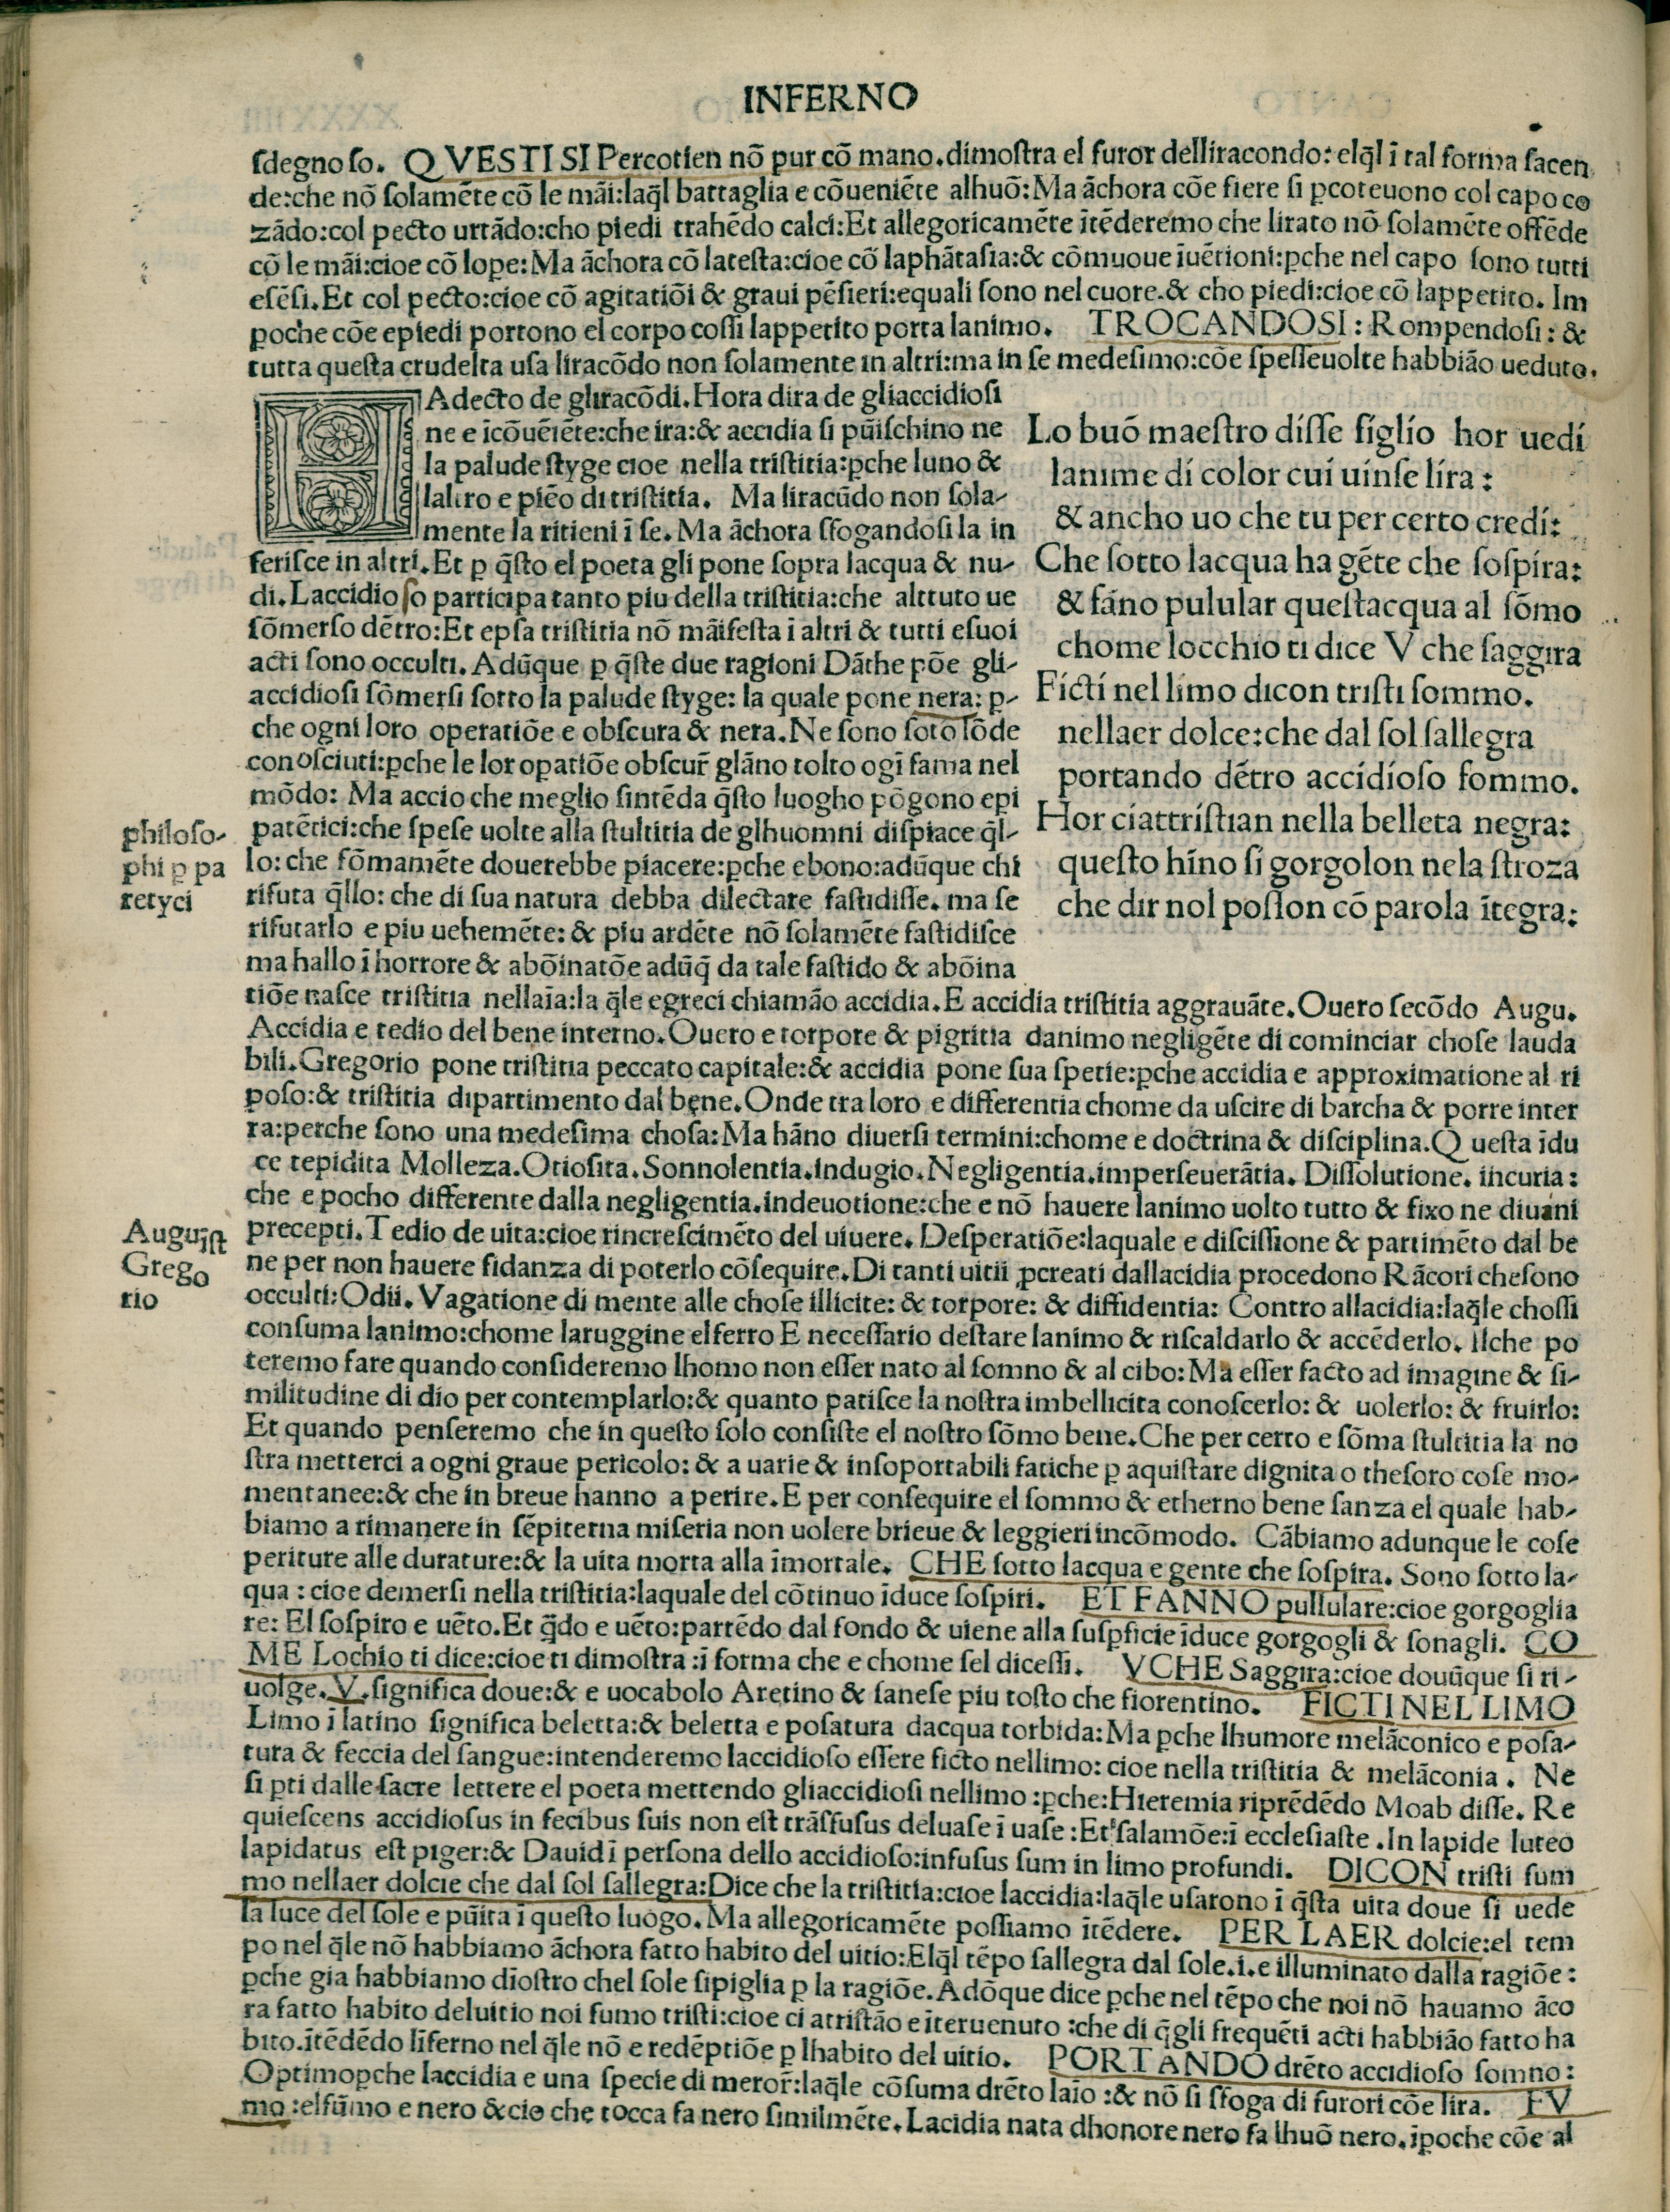 INFERNO
sdegnoso. QVESTI SI Percotien nõ pur cõ mano. dimostra el furor delliracondo: elq̃l ĩ tal forma sacen
de: che nõ solamẽte cõ le mãi: laq̃l battaglia e cõueniẽte alhuõ: Ma ãchora cõe fiere si ꝑcoteuono col capo co
zãdo: col pecto urtãdo: cho piedi trahẽdo calci: Et allegoricamẽte ĩtẽderemo che lirato nõ solamẽte offẽde
cõ le mãi: cioe cõ loꝑe: Ma ãchora cõ latesta: cioe cõ laphãtasia: & cõmuoue ĩuẽtioni: ꝑche nel capo sono tutti
esẽsi. Et col pecto: cioe cõ agitatiõi & graui pẽsieri: equali sono nel cuore. & cho piedi: cioe cõ lappetito. Im
ꝑoche cõe epiedi portono el corpo cossi lappetito porta lanimo. TROCANDOSI: Rompendosi: &
tutta questa crudelta usa liracõdo non solamente in altri: ma in se medesimo: cõe spesseuolte habbião ueduto.
HAdecto de gliracõdi. Hora dira de gliaccidiosi
ne e ĩcõuẽiẽte: che ira: & accidia si pũischino ne
la palude styge cioe nella tristitia: ꝑche luno &
laltro e piẽo di tristitia. Ma liracũdo non sola-
mente la ritieni ĩ se. Ma ãchora sfogandosi la in
ferisce in altri. Et ꝑ q̃sto el poeta gli pone sopra lacqua & nu-
di. Laccidioso participa tanto piu della tristitia: che alttuto ue
sõmerso dẽtro: Et epsa tristitia nõ mãifesta ĩ altri & tutti esuoi
acti sono occulti. Adũque ꝑ q̃ste due ragioni Dãthe põe gli-
accidiosi sõmersi sotto la palude styge: la quale pone nera: ꝑ-
che ogni loro operatiõe e obscura & nera. Ne sono soto lõde
conosciuti: ꝑche le lor oꝑatiõe obscur̃ glãno tolto ogĩ fama nel
mõdo: Ma accio che meglio sintẽda q̃sto luogho põgono epi
patẽtici: che spese uolte alla stultitia de glhuomni dispiace q̃l-
lo: che sõmamẽte douerebbe piacere: ꝑche e bono: adũque chi
rifuta q̃llo: che di sua natura debba dilectare fastidisse. ma se
rifutarlo e piu uehemẽte: & piu ardẽte nõ solamẽte fastidisce
ma hallo ĩ horrore & abõinatõe adũq̃ da tale fastido & abõina
Lo buõ maestro disse figlio hor uedi
lanime di color cui uinse lira:
& ancho uo che tu per certo credi:
Che sotto lacqua ha gẽte che sospira:
& fãno pulular questacqua al sõmo
chome locchio ti dice V che saggira
Ficti nel limo dicon tristi sommo.
nellaer dolce: che dal sol sallegra
portando dẽtro accidioso fommo.
Hor ciattristian nella belleta negra:
questo hĩno si gorgolon nela stroza
che dir nol posson cõ parola ĩtegra:
philoso-
phi ꝑ pa
retyci
tiõe nasce tristitia nellaĩa: la q̃le egreci chiamão accidia. E accidia tristitia aggrauãte. Ouero secõdo Augu.
Accidia e tedio del bene interno. Ouero e torpore & pigritia danimo negligẽte di cominciar chose lauda
bili. Gregorio pone tristitia peccato capitale: & accidia pone sua spetie: ꝑche accidia e approximatione al ri
poso: & tristitia dipartimento dal bene. Onde tra loro e differentia chome da uscire di barcha & porre inter
ra: perche sono una medesima chosa: Ma hãno diuersi termini: chome e doctrina & disciplina. Questa ĩdu
ce tepidita Molleza. Otiosita. Sonnolentia. indugio. Negligentia. imperseuerãtia. Dissolutione. incuria:
che e pocho differente dalla negligentia. indeuotione: che e nõ hauere lanimo uolto tutto & fixo ne diuini
precepti. Tedio de uita: cioe rincrescimẽto del uiuere. Desperatiõe: laquale e discissione & partimẽto dal be
ne per non hauere fidanza di poterlo cõsequire. Di tanti uitii ꝓcreati dallacidia procedono Rãcori chesono
occulti: Odii. Vagatione di mente alle chose illicite: & torpore: & diffidentia: Contro allacidia: laq̃le chossi
consuma lanimo: chome laruggine elferro E necessario destare lanimo & riscaldarlo & accẽderlo. Ilche po
teremo fare quando consideremo lhomo non esser nato al somno & al cibo: Ma esser facto ad imagine & si-
militudine di dio per contemplarlo: & quanto patisce la nostra imbellicita conoscerlo: & uolerlo: & fruirlo:
Et quando penseremo che in questo solo consiste el nostro sõmo bene. Che per certo e sõma stultitia la no
stra metterci a ogni graue pericolo: & a uarie & insoportabili fatiche ꝑ aquistare dignita o thesoro cose mo-
mentanee: & che in breue hanno a perire. E per consequire el sommo & etherno bene sanza el quale hab-
biamo a rimanere in sẽpiterna miseria non uolere brieue & leggieri incõmodo. Cãbiamo adunque le cose
periture alle durature: & la uita morta alla ĩmortale. CHE sotto lacqua e gente che sospira. Sono sotto la-
qua: cioe demersi nella tristitia: laquale del cõtinuo ĩduce sospiri. ET FANNO pullulare: cioe gorgoglia
re: El sospiro e uẽto. Et q̃do e uẽto: partẽdo dal fondo & uiene alla susꝑficie ĩduce gorgogli & sonagli. CO
ME Lochio ti dice: cioe ti dimostra: ĩ forma che e chome sel dicessi. VCHE Saggira: cioe douũque si ri-
uolge. V. significa doue: & e uocabolo Aretino & sanese piu tosto che fiorentino. FICTI NEL LIMO
Limo ĩ latino significa beletta: & beletta e posatura dacqua torbida: Ma ꝑche lhumore melãconico e posa-
tura & feccia del sangue: intenderemo laccidioso essere ficto nellimo: cioe nella tristitia & melãconia. Ne
si ꝑti dalle sacre lettere el poeta mettendo gliaccidiosi nellimo: ꝑche: Hieremia riprẽdẽdo Moab disse. Re
quiescens accidiosus in fecibus suis non est trãsfusus deluase ĩ uase: Et salamõe: ĩ ecclesiaste. In lapide luteo
lapidatus est piger: & Dauid ĩ persona dello accidioso: infusus sum in limo profundi. DICON tristi fum
mo nellaer dolcie che dal sol sallegra: Dice che la tristitia: cioe laccidia: laq̃le usarono ĩ q̃sta uita doue si uede
la luce del sole e pũita ĩ questo luogo. Ma allegoricamẽte possiamo ĩtẽdere. PER LAER dolcie: el tem
po nel q̃le nõ habbiamo ãchora fatto habito del uitio: Elq̃l tẽpo sallegra dal sole. i. e illuminato dalla ragiõe:
ꝑche gia habbiamo diostro chel sole sipiglia ꝑ la ragiõe. Adõque dice ꝑche nel tẽpo che noi nõ hauamo ãco
ra fatto habito deluitio noi fumo tristi: cioe ci attristão e ĩteruenuto: che di q̃gli frequẽti acti habbião fatto ha
bito. ĩtẽdẽdo lĩferno nel q̃le nõ e redẽptiõe ꝑ lhabito del uitio. PORTANDO drẽto accidioso somno:
Optimoꝑche laccidia e una specie di meror̃: laq̃le cõsuma drẽto laĩo: & nõ si sfoga di furori cõe lira. FV
mo: elfũmo e nero & cio che tocca fa nero similmẽte. Lacidia nata dhonore nero fa lhuõ nero. ĩꝑoche cõe al
Augu
Grego
rio